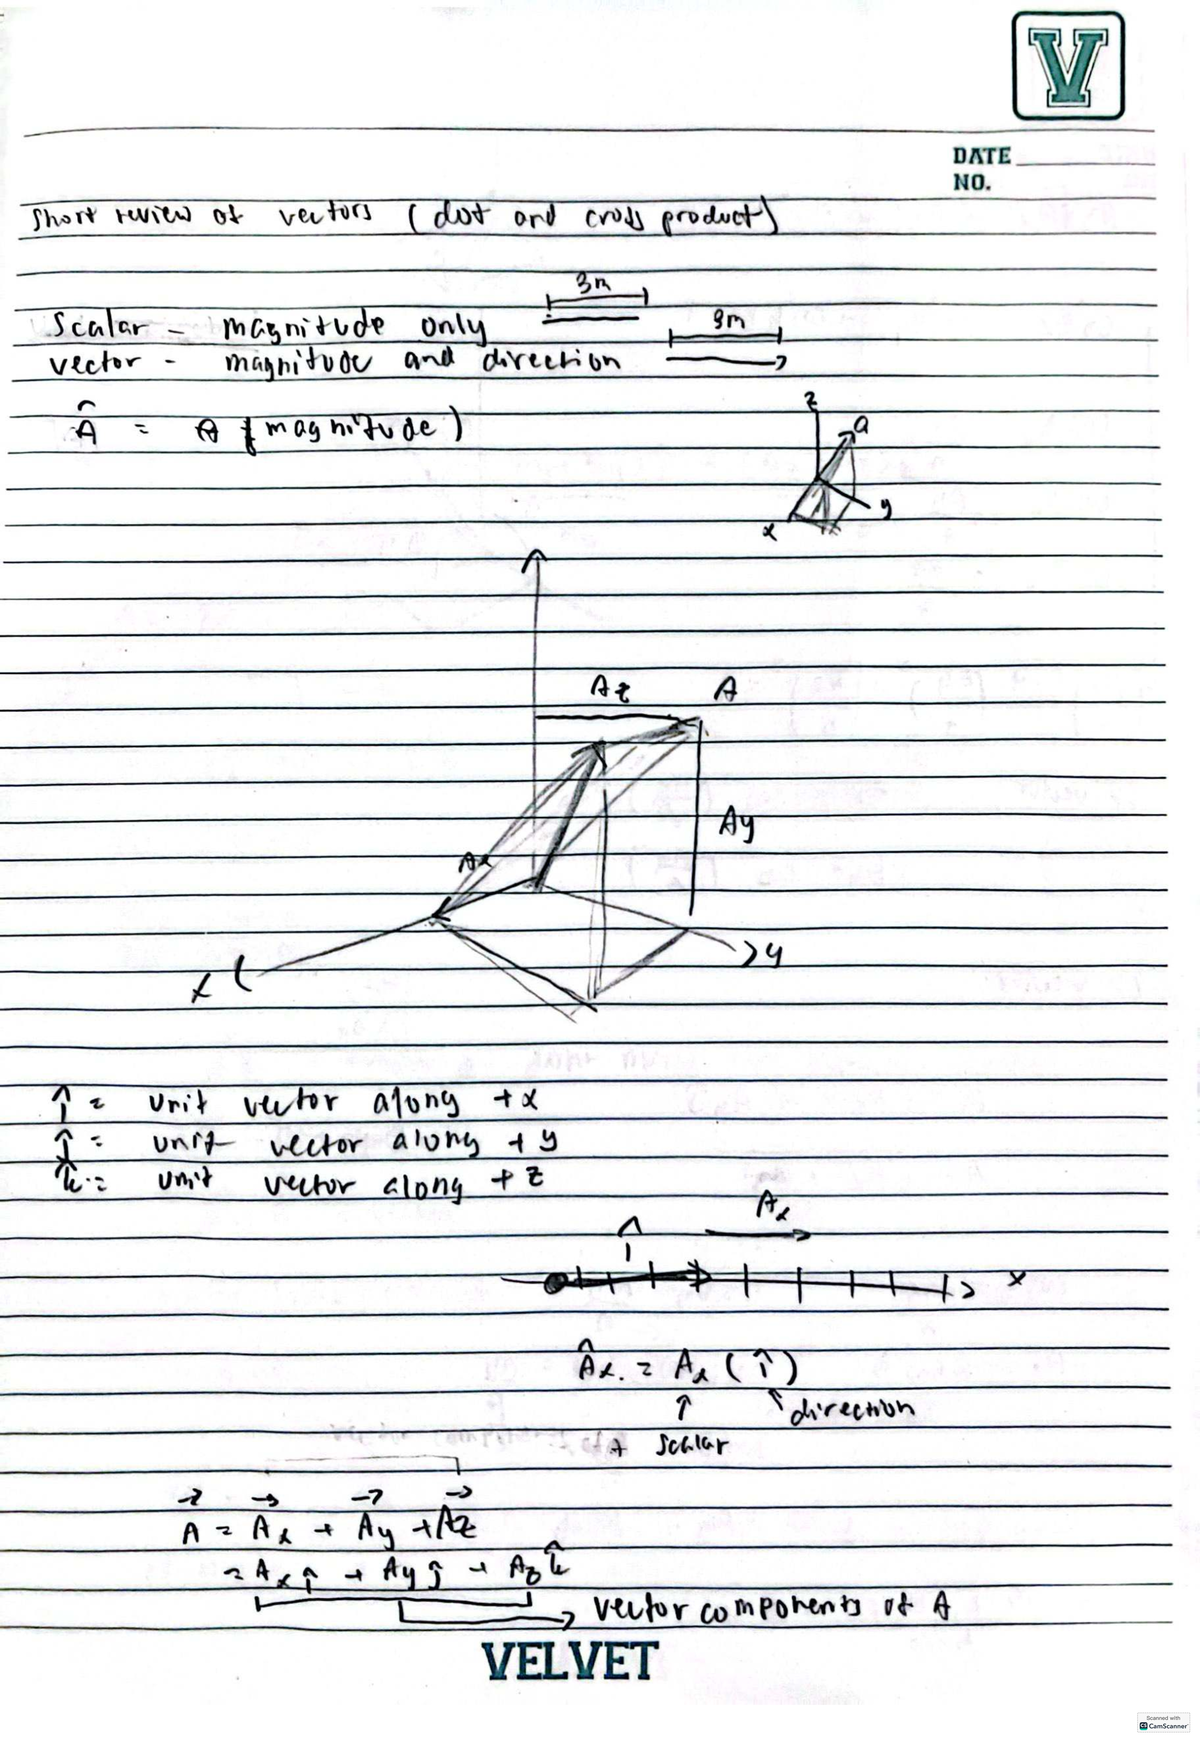 V
DATE
NO.
Short review of vectors (dot and cross product)
3m
Scalar - magnitude only
3m
vector - magnitude and direction
Â = A (magnitude)
z
a
y
x
Az A
Ay
Ax
x y
î = unit vector along +x
ĵ = unit vector along +y
k̂ = unit vector along +z
Ax
î
x
Âx. = Ax (î)
↑ ↑ direction
+ scalar
A⃗ = A⃗x + A⃗y + A⃗z
= Ax î + Ay ĵ + Az k̂
vector components of A
VELVET
Scanned with
CS CamScanner